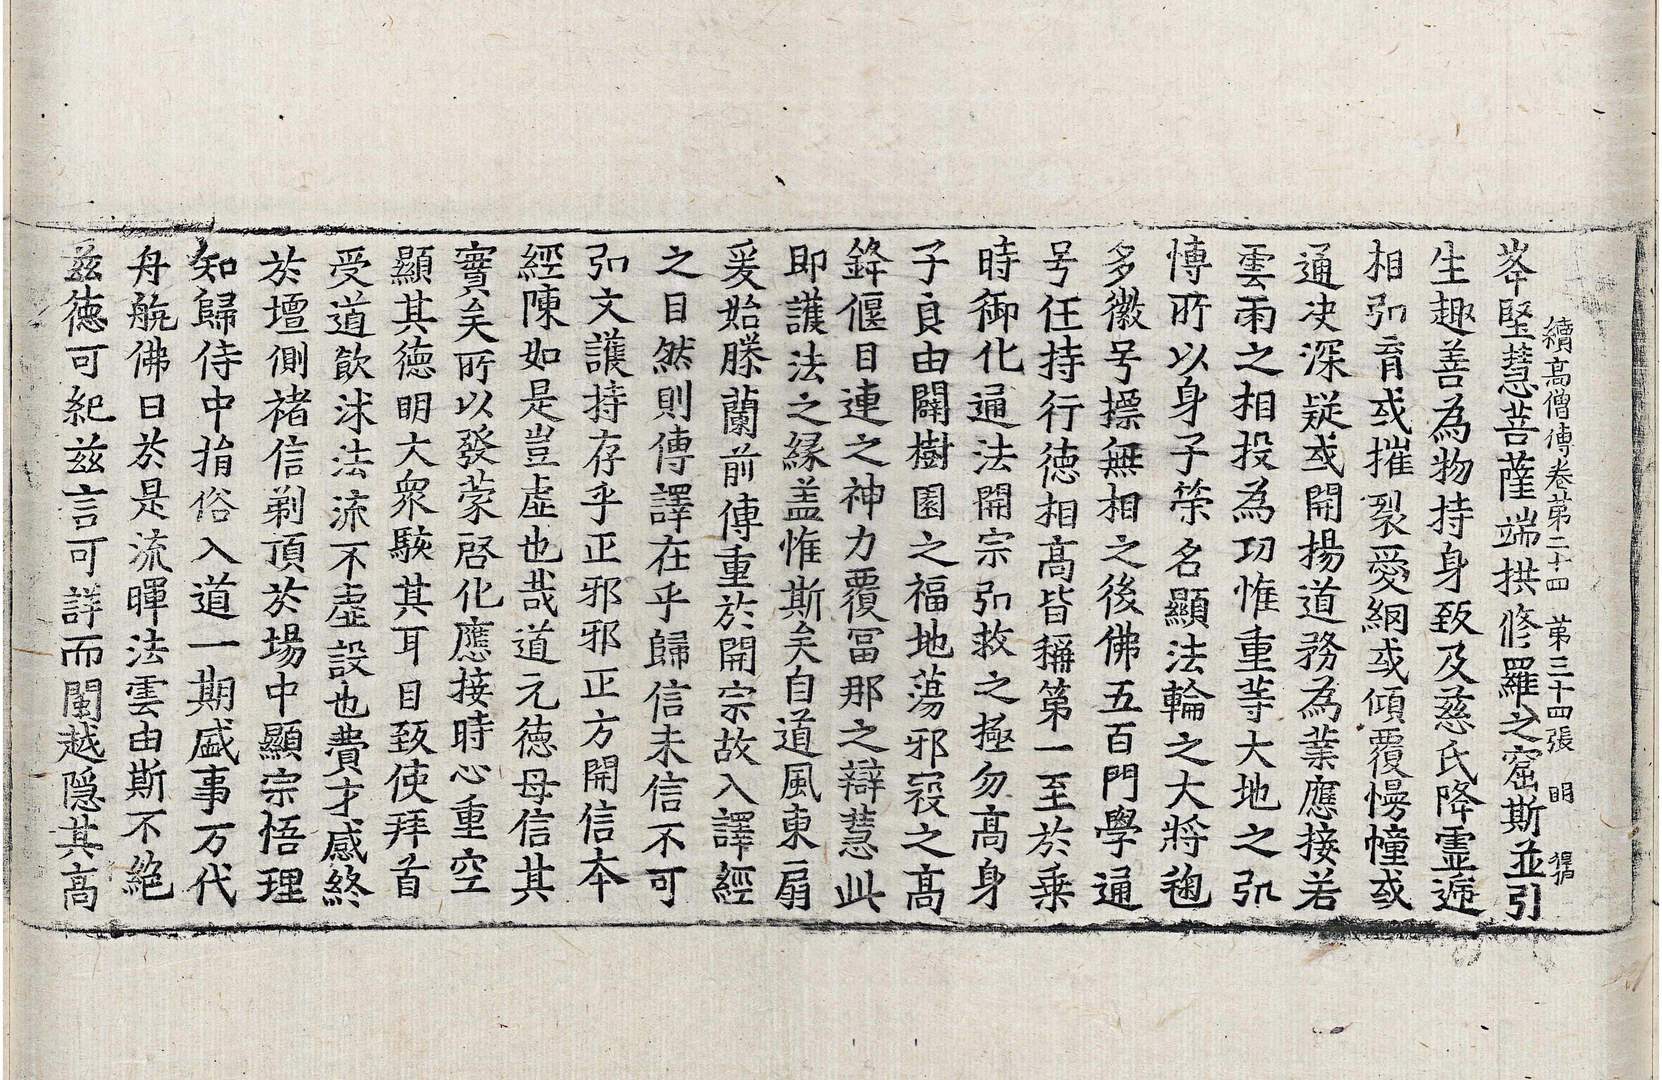 峯堅慧菩薩端拱修羅之窟斯並引
續高僧傳卷第二十四　第三十四張　明
生趣善為物持身致及慈氏降霊遞
相引育或摧裂愛網或傾覆慢幢或
通决深疑或開揚道務為業應接若
雲雨之相投為功惟重等大地之弘
博所以身子等名顯法輪之大將𪍿
多徽号摽無相之後佛五百門學通
号任持行徳相高皆稱第一至於乗
時御化通法開宗弘救之極勿髙身
子良由闢樹園之福地蕩邪寇之髙
鋒偃目連之神力覆冨那之辯慧此
即護法之縁盖惟斯矣自道風東扇
爰始滕蘭前傳重於開宗故入譯經
之目然則傳譯在乎歸信未信不可
弘文護持存乎正邪邪正方開信本
經陳如是豈虚也哉道元徳母信其
實矣所以發蒙啓化應接時心重空
顯其徳明大衆駭其耳目致使拜首
受道飲沭法流不虚設也費才感終
於壇側禇信剃頂於場中顯宗悟理
知歸侍中捐俗入道一期盛事万代
舟航佛日於是流暉法雲由斯不絕
茲徳可紀茲言可詳而閩越隱其高